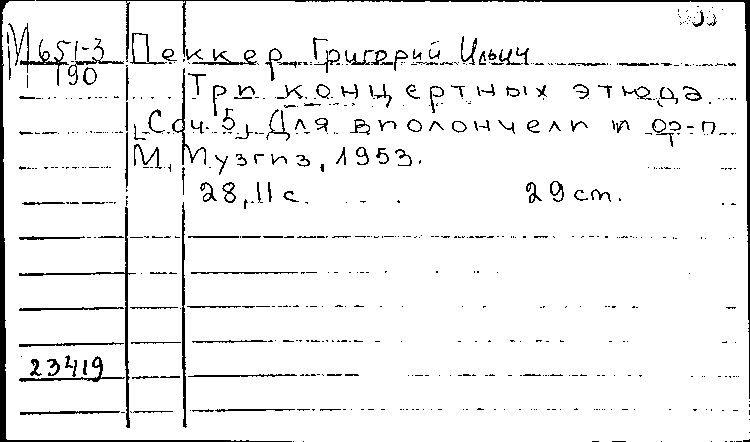 М 651-3 Пеккер Григорий Ильич
190
Три концертных этюда.
[Соч. 5] Для виолончели и ф-п
М, Музгиз, 1953.
28, 11 с. 29 ст.
23419